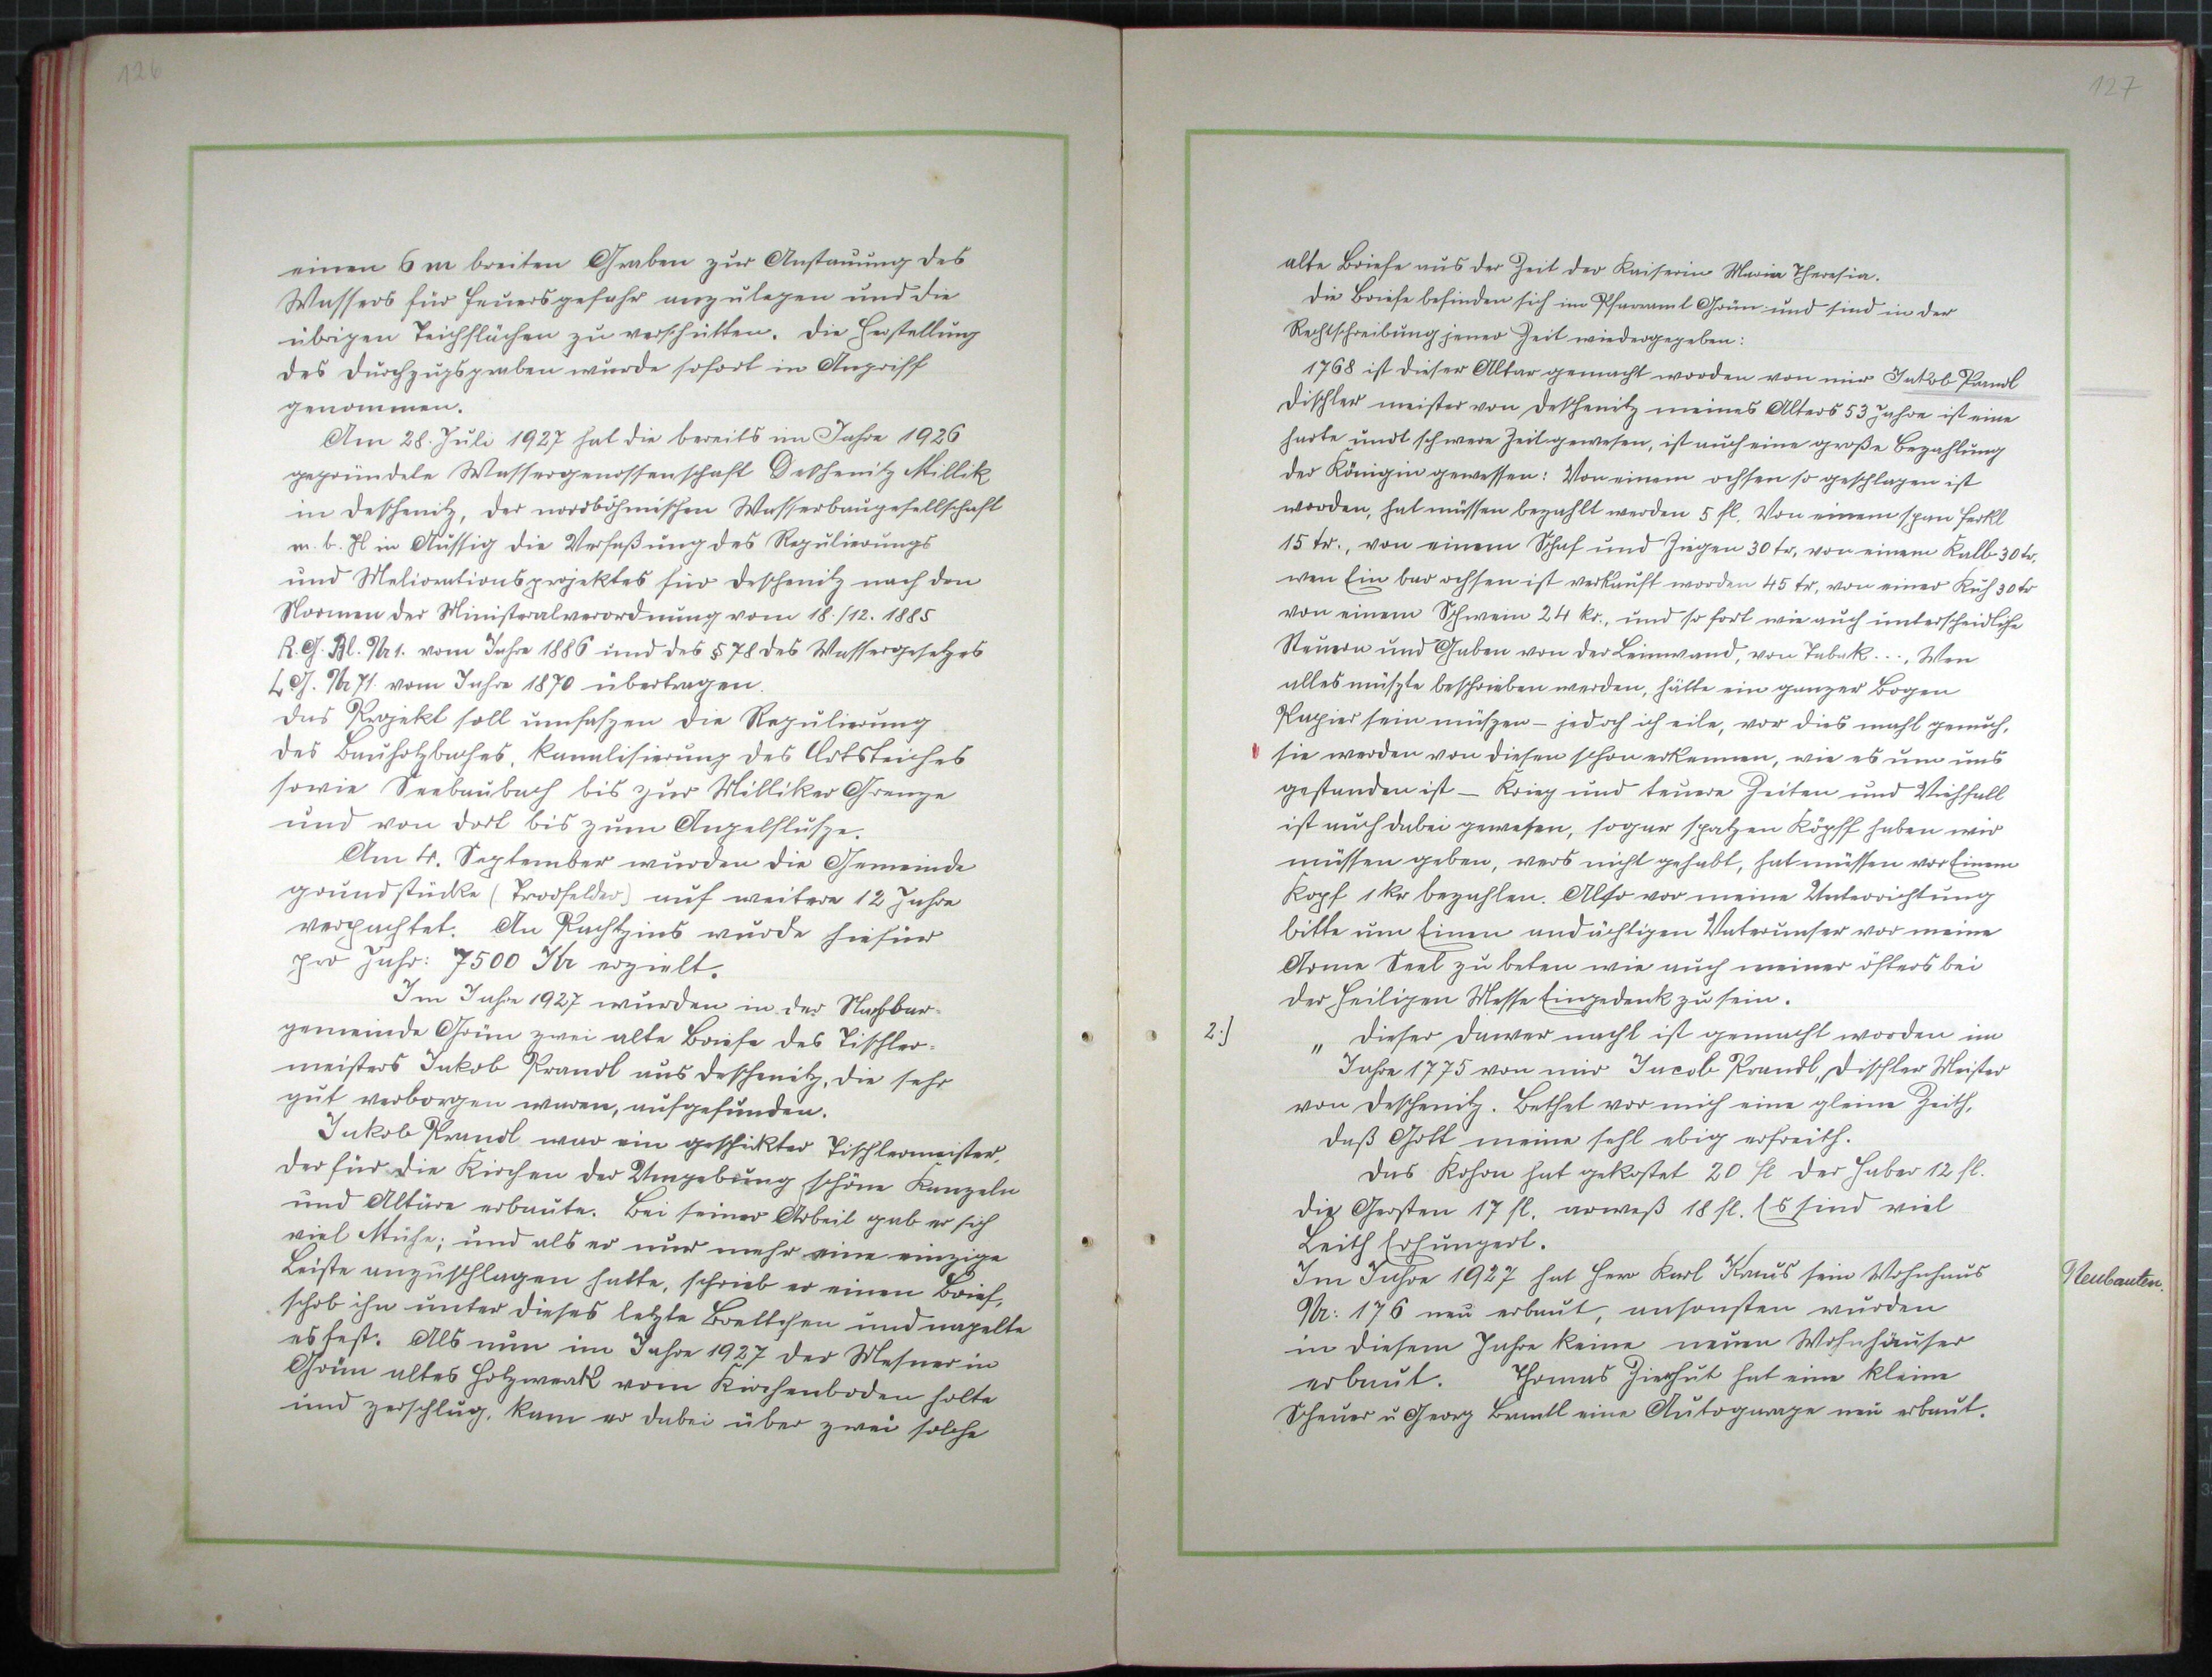 126
einen 6 m breiten Graben zur Anstauung des
Wassers für Feuersgefahr anzulegen und die
übrigen Teichflächen zu verschütten. Die Herstellung
des Durchzugsgraben wurde sofort in Angriff
genommen.
Am 28. Juli 1927 hat die bereits im Jahre 1926
gegründete Wassergenossenschaft Deschenitz Millik
in Deschenitz, der nordböhmischen Wasserbaugesellschaft
m. b. H in Aussig die Verfaßung des Regulierungs
und Meliorationsprojektes für Deschenitz nach den
Normen der Ministeralverordnung vom 18./12. 1885
R. G. Bl. Nr 1. vom Jahre 1886 und des § 78 des Wassergesetzes
L G. Nr 71. vom Jahre 1870 übertragen.
Das Projekt soll umfaszen die Regulierung
des Bauholzbaches, Kanalisierung des Ortsteiches
sowie Seebaubach bis zur Milliker Grenze
und von dort bis zum Angelflusze.
Am 4. September wurden die Gemeinde
grundstücke (Trodfelder) auf weitere 12 Jahre
verpachtet. An Pachtzins wurde hiefür
pro Jahr: 7500 Kr erzielt.
Im Jahre 1927 wurden in der Nachbar-
gemeinde Grün zwei alte Briefe des Tischler-
meisters Jakob Prandl aus Deschenitz, die sehr
gut verborgen waren, aufgefunden.
Jakob Prandl war ein geschickter Tischlermeister,
der für die Kirchen der Umgebung schöne Kanzeln
und Altäre erbaute. Bei seiner Arbeit gab er sich
viel Mühe; und als er nur mehr eine einzige
Leiste anzuschlagen hatte, schrieb er einen Brief,
schob ihn unter dieses letzte Brettchen und nagelte
es fest. Als nun im Jahre 1927 der Mesner in
Grün altes Holzwerk vom Kirchenboden holte
und zerschlug, kam er dabei über zwei solche
127
alte Briefe aus der Zeit der Kaiserin Maria Theresia.
Die Briefe befinden sich im Pfarramt Grün und sind in der
Rechtschreibung jener Zeit wiedergegeben:
1768 ist dieser Altar gemacht worden von mir Jakob Prandl
Dischler meister von Deschenitz meines Alters 53 Jahre ist eine
harte undt schwere Zeit gewesen, ist auch eine große Bezahlung
der Königin gewessen: Von einem ochsen so geschlagen ist
worden, hat müssen bezahlt werden 5 fl. Von einem span ferkl
15 kr., von einem Schaf und Ziegen 30 kr, von einem Kalb 30 kr,
wen Ein bar ochsen ist verkauft worden 45 kr, von einer Kuh 30 kr
von einem Schwein 24 kr., und so fort wie auch unterscheidliche
Steuern und Gaben von der Leinwand, von Tabak.... Wen
alles müszte beschrieben werden, hätte ein ganzer Bogen
Papier sein müszen – jedoch ich eile, vor dies mahl genuch,
sie werden von diesen schon erkennen, wie es um uns
gestanden ist – Krieg und teuere Zeiten und Viehfall
ist auch dabei gewesen, sogar spatzen Köpff haben wir
müssen geben, wers nicht gehabt, hat müssen vor Einem
Kopf 1 kr bezahlen. Also vor meine Unterrichtung
bitte um Einen andächtigen Vaterunser vor meine
Arme Seel zu beten wie auch meiner öfters bei
der heiligen Messe Eingedenk zu sein.
2.) „ Dieser dawer nachl ist gemacht worden im
Jahre 1775 von mir Jacob Prandl, Dischler Meister
von Deschenitz. Bethet vor mich eine gleine Zeith,
daß Gott meine sehl ebig erfreith.
Das Kohrn hat gekostet 20 fl der Haber 12 fl.
die Gersten 17 fl. arweß 18 fl. Es sind viel
Leith Erhungert.
Im Jahre 1927 hat Herr Karl Kraus sein Wohnhaus
Nr: 176 neu erbaut, ansonsten wurden
in diesem Jahre keine neuen Wohnhäuser
erbaut. Thomas Zierhut hat eine kleine
Scheuer u Georg Brantl eine Autogarage neu erbaut.
Neubauten.